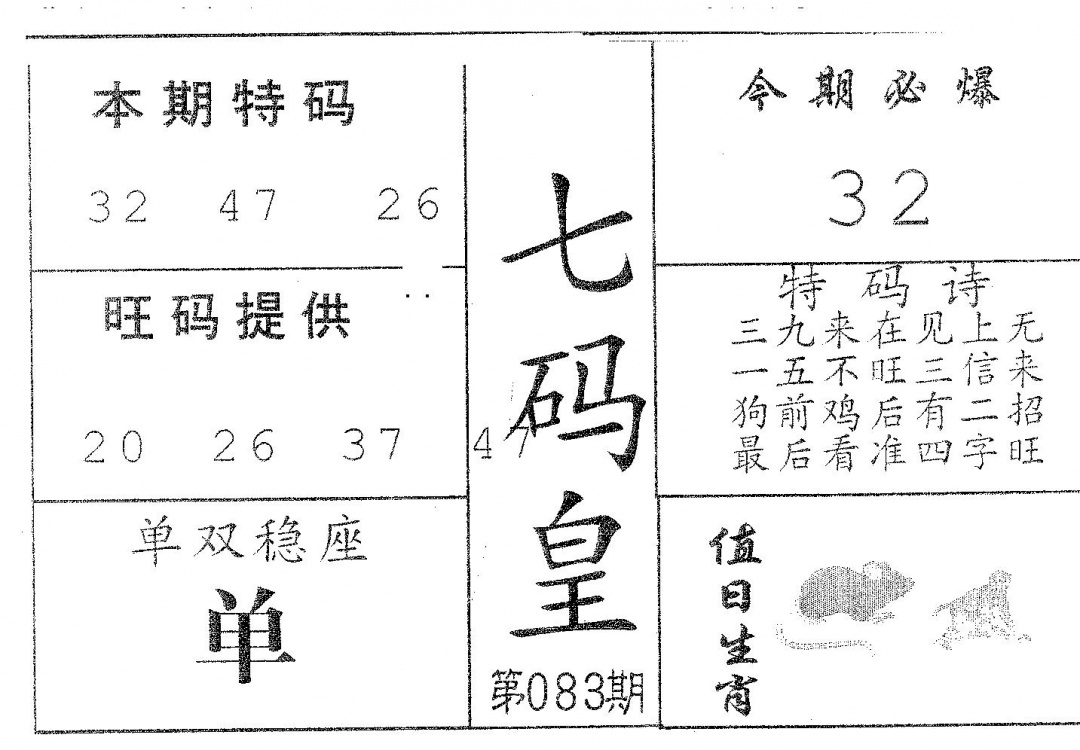 本期特码
32 47 26
旺码提供
20 26 37 47
单双稳座
单
七码皇
第083期
今期必爆
32
特码诗
三九来在见上无
一五不旺三信来
狗前鸡后有二招
最后看准四字旺
值日生肖